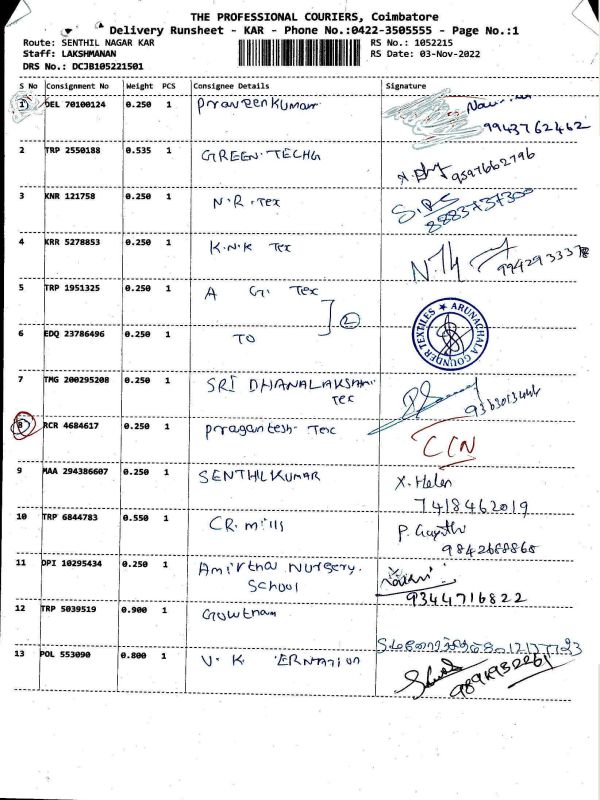 THE PROFESSIONAL COURIERS, Coimbatore
Delivery Runsheet - KAR - Phone No.:0422-3505555 - Page No.:1
Route: SENTHIL NAGAR KAR RS No.: 1052215
Staff: LAKSHMANAN RS Date: 03-Nov-2022
DRS No.: DCJB105221501
S No Consignment No Weight PCS Consignee Details Signature
1 DEL 70100124 0.250 1 PraveenKumar
9943762462
2 TRP 2550188 0.535 1 GREEN.TECHG
9597662796
3 KNR 121758 0.250 1 N.R.Tex
8883737300
4 KRR 5278853 0.250 1 K.N.K Tex
5 TRP 1951325 0.250 1 A G. Tex
2
ARUNACHALA GOUNDER TEXTILES
6 EDQ 23786496 0.250 1 TO
7 TMG 200295208 0.250 1 SRI DHANALAKSHMI
Tex
8 RCR 4684617 0.250 1 Tex
CCN
9 MAA 294386607 0.250 1 SENTHILKUMAR X. Helen
7418462019
10 TRP 6844783 0.550 1 CR. mills
11 DPI 10295434 0.250 1 Amirtha Nursery.
School
9344716822
12 TRP 5039519 0.900 1 Gowtham
13 POL 553090 0.800 1 V. K ERNATION